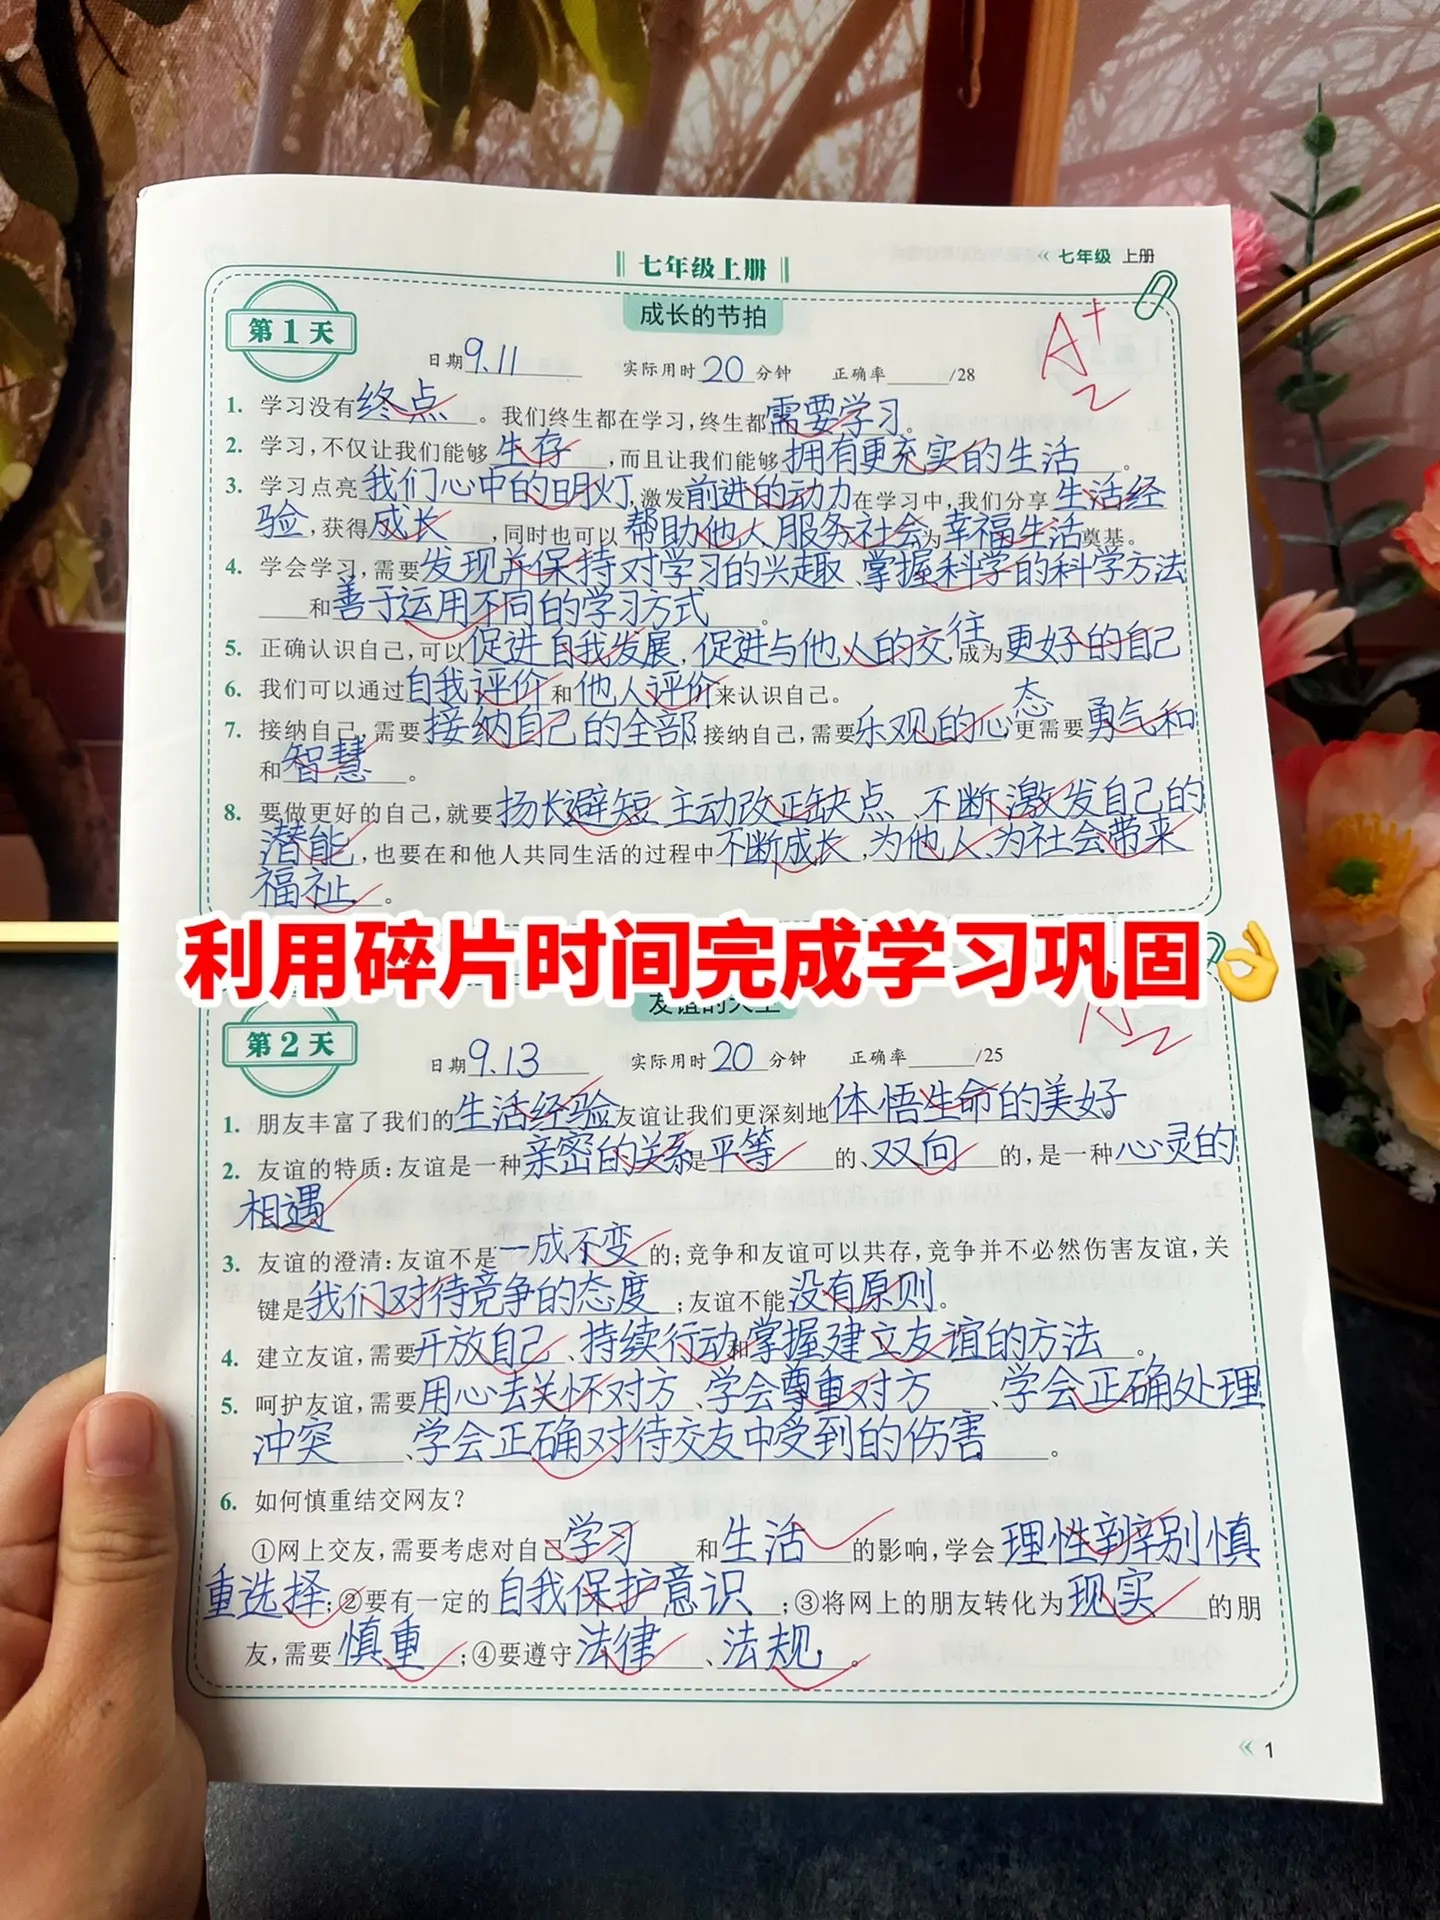 七年级上册
« 七年级 上册
成长的节拍
第1天
A+
日期9.11 实际用时20分钟 正确率____/28
1. 学习没有终点。我们终生都在学习,终生都需要学习。
2. 学习,不仅让我们能够生存,而且让我们能够拥有更充实的生活。
3. 学习点亮我们心中的明灯,激发前进的动力在学习中,我们分享生活经
验,获得成长,同时也可以帮助他人服务社会为幸福生活奠基。
4. 学会学习,需要发现并保持对学习的兴趣、掌握科学的科学方法
和善于运用不同的学习方式。
5. 正确认识自己,可以促进自我发展,促进与他人的交往,成为更好的自己
6. 我们可以通过自我评价和他人评价来认识自己。
7. 接纳自己,需要接纳自己的全部,接纳自己,需要乐观的心态,更需要勇气和
和智慧。
8. 要做更好的自己,就要扬长避短、主动改正缺点、不断激发自己的
潜能,也要在和他人共同生活的过程中不断成长,为他人、为社会带来
福祉。
利用碎片时间完成学习巩固👌
第2天
日期9.13 实际用时20分钟 正确率____/25
1. 朋友丰富了我们的生活经验友谊让我们更深刻地体悟生命的美好
2. 友谊的特质:友谊是一种亲密的关系是平等的、双向的,是一种心灵的
相遇
3. 友谊的澄清:友谊不是一成不变的;竞争和友谊可以共存,竞争并不必然伤害友谊,关
键是我们对待竞争的态度;友谊不能没有原则。
4. 建立友谊,需要开放自己、持续行动和掌握建立友谊的方法。
5. 呵护友谊,需要用心去关怀对方、学会尊重对方、学会正确处理
冲突、学会正确对待交友中受到的伤害。
6. 如何慎重结交网友?
①网上交友,需要考虑对自己学习和生活的影响,学会理性辨别慎
重选择;②要有一定的自我保护意识;③将网上的朋友转化为现实的朋
友,需要慎重;④要遵守法律、法规。
« 1